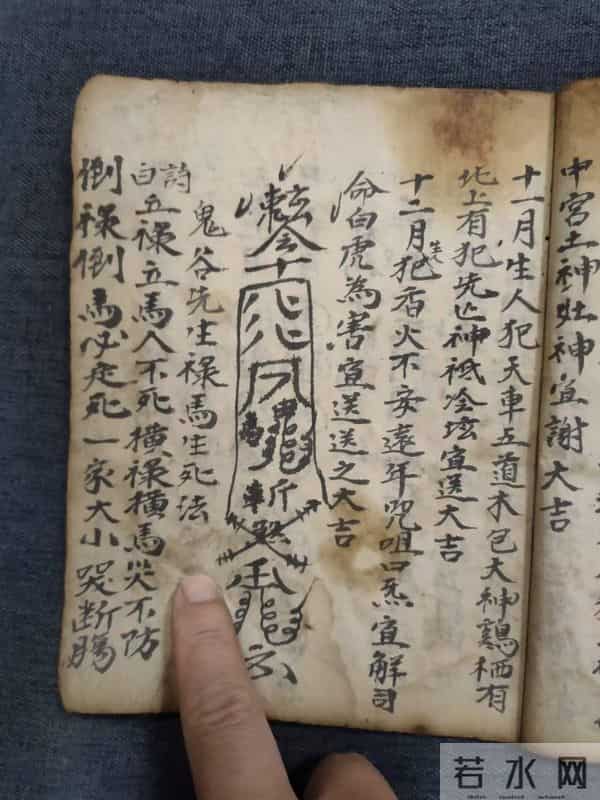 中宮土神灶神宜謝大吉
十一月生人犯天車五道木包大神鷄栖有
北上有犯先亡神祗冷坛宜送大吉
十二月生人犯香火不安遠年咒咀口 宜解司
命白虎為害宜送送之大吉
斬
鬼谷先生禄馬生死法
詩曰 立禄立馬人不死横禄横馬災不防
倒禄倒馬必定死一家大小哭断腸
若水网